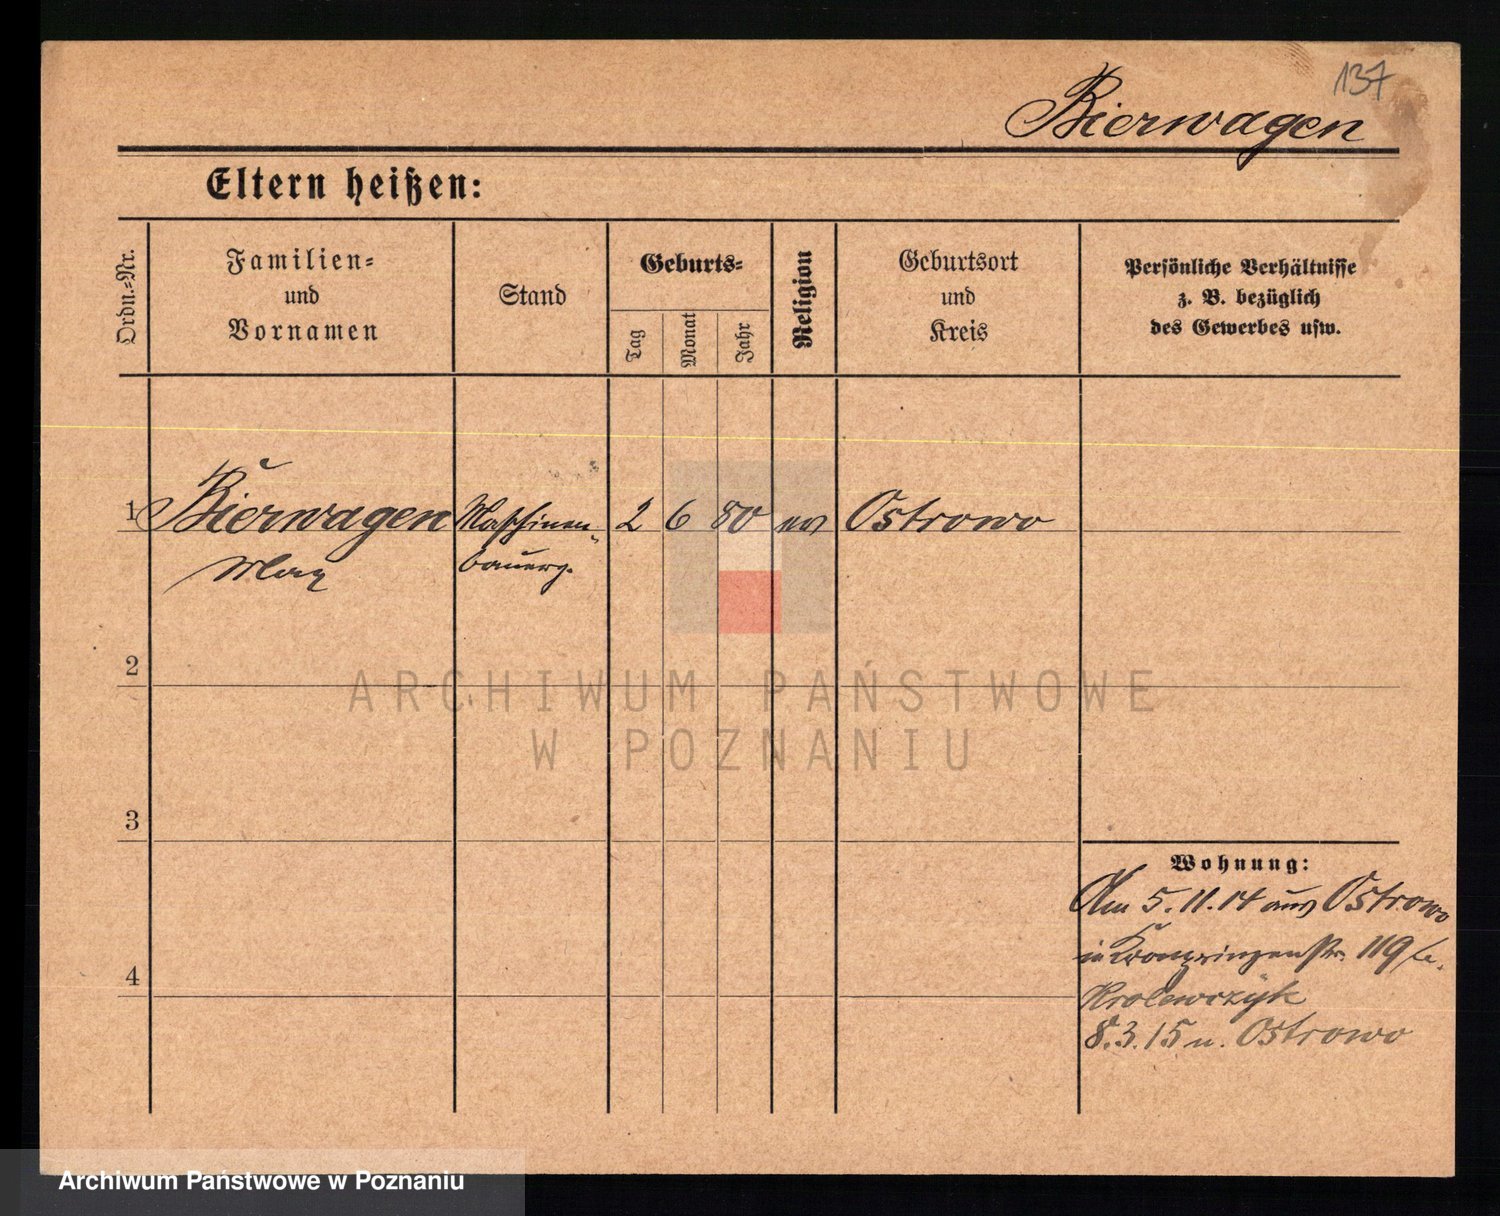 137
Bierwagen
Eltern heißen:
Ordn.-Nr.
Familien-
und
Vornamen
Stand
Geburts-
Tag
Monat
Jahr
Religion
Geburtsort
und
Kreis
Persönliche Verhältnisse
z. B. bezüglich
des Gewerbes usw.
1 Bierwagen Maschinen- 2 6 80 ev Ostrowo
Max bauerg.
2
ARCHIWUM PAŃSTWOWE
W POZNANIU
3
Wohnung:
Am 5.11.14 aus Ostrowo
in Kronprinzenstr. 119 b.
Krolewczyk
4
8.3.15 n. Ostrowo
Archiwum Państwowe w Poznaniu